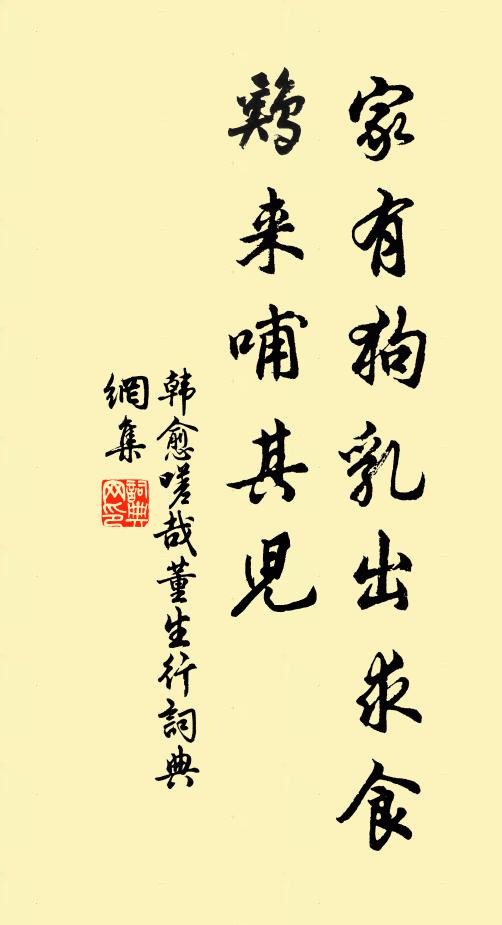 家有狗乳出求食
鷄来哺其兒
韩愈嗟哉董生行詞典
網集
詞典
网印